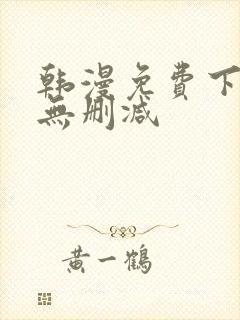 韩漫免费下
無删减
黄一鹤